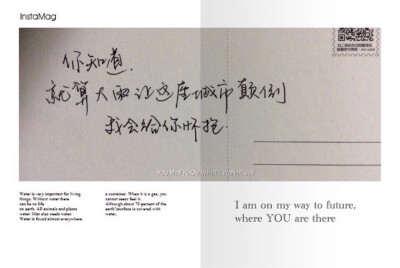 InstaMag
你知道
就算大雨让这座城市颠倒
我会给你怀抱.
Water is very important for living
things. Without water there
can be no life
on earth. All animals and plants
water. Man also needs water.
Water is found almost everywhere.
a container. When it is a gas, you
cannot seeor feel it.
Although about 70 percent of the
earth'ssurface is covered with
water,
I am on my way to future,
where YOU are there